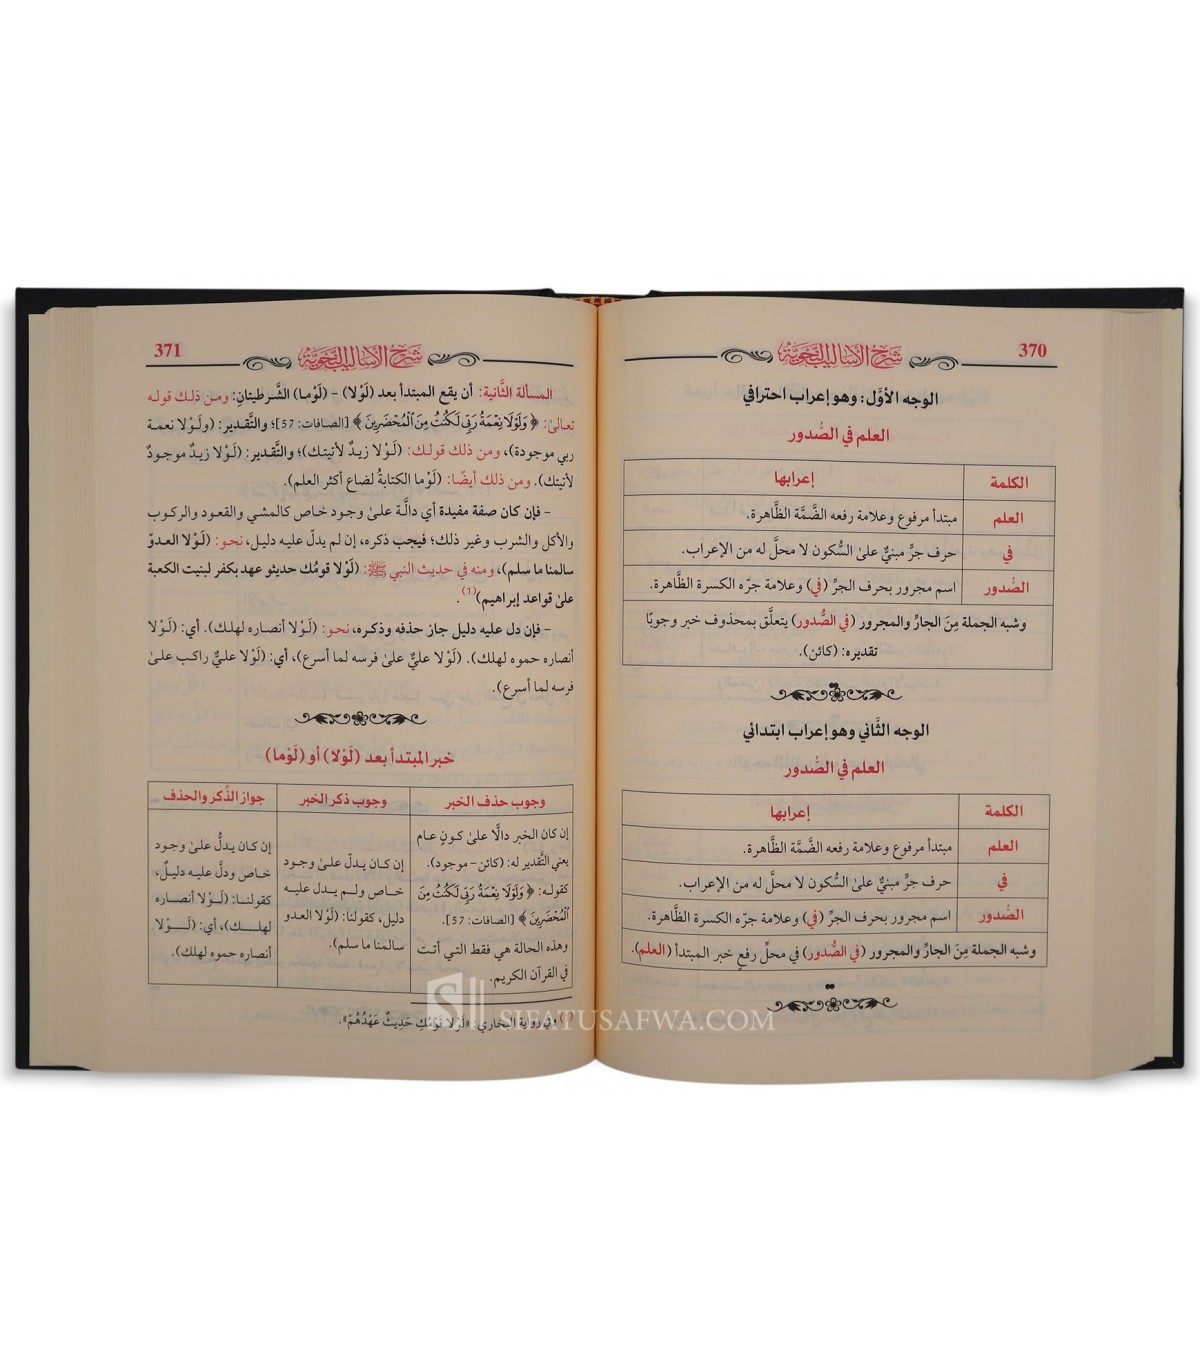 370
شرح الأساليب النحوية
الوجه الأوَّل: وهو إعراب احترافي
العلم في الصُّدور
الكلمة إعرابها
العلم مبتدأ مرفوع وعلامة رفعه الضَّمَّة الظَّاهرة.
في حرف جرٍّ مبنيٌّ علىٰ السُّكون لا محلَّ له من الإعراب.
الصُّدور اسم مجرور بحرف الجرِّ (في) وعلامة جرّه الكسرة الظَّاهرة.
وشبه الجملة مِنَ الجارِّ والمجرور (في الصُّدور) يتعلَّق بمحذوف خبر وجوبًا
تقديره: (كائن).
الوجه الثَّاني وهو إعراب ابتدائي
العلم في الصُّدور
الكلمة إعرابها
العلم مبتدأ مرفوع وعلامة رفعه الضَّمَّة الظَّاهرة.
في حرف جرٍّ مبنيٌّ علىٰ السُّكون لا محلَّ له من الإعراب.
الصُّدور اسم مجرور بحرف الجرِّ (في) وعلامة جرّه الكسرة الظَّاهرة.
وشبه الجملة مِنَ الجارِّ والمجرور (في الصُّدور) في محلِّ رفعٍ خبر المبتدأ (العلم).
371
شرح الأساليب النحوية
المسألة الثَّانية: أن يقع المبتدأ بعد (لَوْلا) – (لَوْما) الشَّرطيتان: ومن ذلك قوله
تعالىٰ: ﴿وَلَوْلَا نِعْمَةُ رَبِّي لَكُنتُ مِنَ ٱلْمُحْضَرِينَ﴾ [الصافات: 57]؛ والتَّقدير: (ولَوْلا نعمة
ربي موجودة)، ومن ذلك قولك: (لَوْلا زيدٌ لأتيتك)؛ والتَّقدير: (لَوْلا زيدٌ موجودٌ
لأتيتك). ومن ذلك أيضًا: (لَوْما الكتابةُ لضاع أكثر العلم).
– فإن كان صفة مفيدة أي دالَّة علىٰ وجود خاص كالمشي والقعود والركوب
والأكل والشرب وغير ذلك؛ فيجب ذكره، إن لم يدلّ عليه دليل، نحو: (لَوْلا العدوّ
سالمنا ما سلم)، ومنه في حديث النبي ﷺ: (لَوْلا قومُك حديثو عهد بكفر لبنيت الكعبة
علىٰ قواعد إبراهيم)(1).
– فإن دل عليه دليل جاز حذفه وذكره، نحو: (لَوْلا أنصاره لهلك). أي: (لَوْلا
أنصاره حموه لهلك). (لَوْلا عليٌّ علىٰ فرسه لما أسرع)، أي: (لَوْلا عليٌّ راكب علىٰ
فرسه لما أسرع).
خبر المبتدأ بعد (لَوْلا) أو (لَوْما)
وجوب حذف الخبر وجوب ذكر الخبر جواز الذِّكر والحذف
إن كان الخبر دالًّا علىٰ كونٍ عام
يعني التَّقدير له: (كائن– موجود).
كقوله: ﴿وَلَوْلَا نِعْمَةُ رَبِّي لَكُنتُ مِنَ
ٱلْمُحْضَرِينَ﴾ [الصافات: 57].
وهذه الحالة هي فقط التي أتت
في القرآن الكريم.
إن كان يدلّ علىٰ وجود
خاص ولم يدل عليه
دليل، كقولنا: (لَوْلا العدو
سالمنا ما سلم).
إن كان يدلُّ علىٰ وجود
خاص ودلَّ عليه دليلٌ،
كقولنا: (لَوْلا أنصاره
لهلك)، أي: (لَوْلا
أنصاره حموه لهلك).
(1) وفي رواية البخاري: «لَوْلَا قَوْمُكِ حَدِيثٌ عَهْدُهُمْ».
SIFATUSAFWA.COM